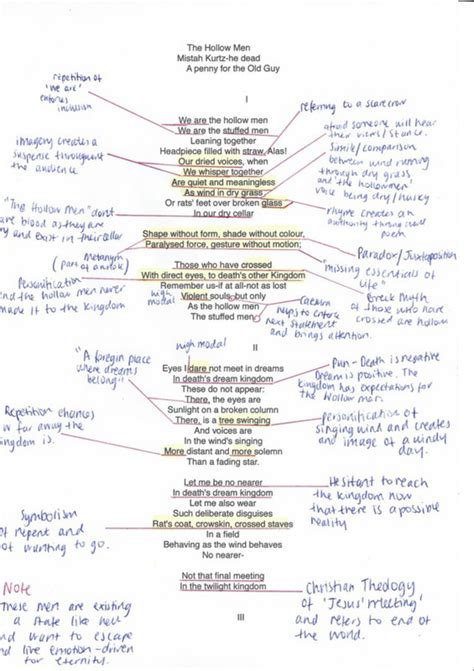 The Hollow Men
Mistah Kurtz-he dead
A penny for the Old Guy
I
repetition of
'we are'
enforces
inclusion
We are the hollow men
We are the stuffed men
Leaning together
Headpiece filled with straw. Alas!
Our dried voices, when
We whisper together
Are quiet and meaningless
As wind in dry grass
Or rats' feet over broken glass
In our dry cellar
referring to a scarecrow
afraid someone will hear
their views/stance.
Simile/comparison
between wind running
through dry grass
and the hollowmen'
voice being dry/
rhyme creates an
authority through
poem
imagery creates a
suspense throughout
the audience
"The Hollow Men" don't
are blood as they are
and exist in their cellar
Shape without form, shade without colour,
Paralysed force, gesture without motion;
Paradox/Juxtaposition
"missing essentials of
life"
metonym
(part of a whole)
Those who have crossed
With direct eyes, to death's other Kingdom
Remember us-if at all-not as lost
Violent souls, but only
As the hollow men
The stuffed men.
high
modal
Personification
and the hollow men never
made it to the kingdom
Greek Myth
of those who have
crossed are hollow
Caesura
helps to enforce
next statement
and brings attention.
II
high modal
Eyes I dare not meet in dreams
In death's dream kingdom
These do not appear:
There, the eyes are
Sunlight on a broken column
There, is a tree swinging
And voices are
In the wind's singing
More distant and more solemn
Than a fading star.
"A foregin place
where dreams
belong"
Pun - Death is negative
Dream is positive. The
kingdom has expectations for
the Hollow men.
Repetition
far away the
kingdom is.
personification of
singing wind and creates
and image of a windy
day.
Let me be no nearer
In death's dream kingdom
Let me also wear
Such deliberate disguises
Rat's coat, crowskin, crossed staves
In a field
Behaving as the wind behaves
No nearer-
Hesitant to reach
the kingdom now
that there is a possible
reality
Symbolism
of repent and
not wanting to go.
Not that final meeting
In the twilight kingdom
Christian Theology
of 'Jesus' meeting'
and refers to end of
the world.
Note
These men are existing
a state like hell
and want to escape
and live emotion-driven
for eternity.
III